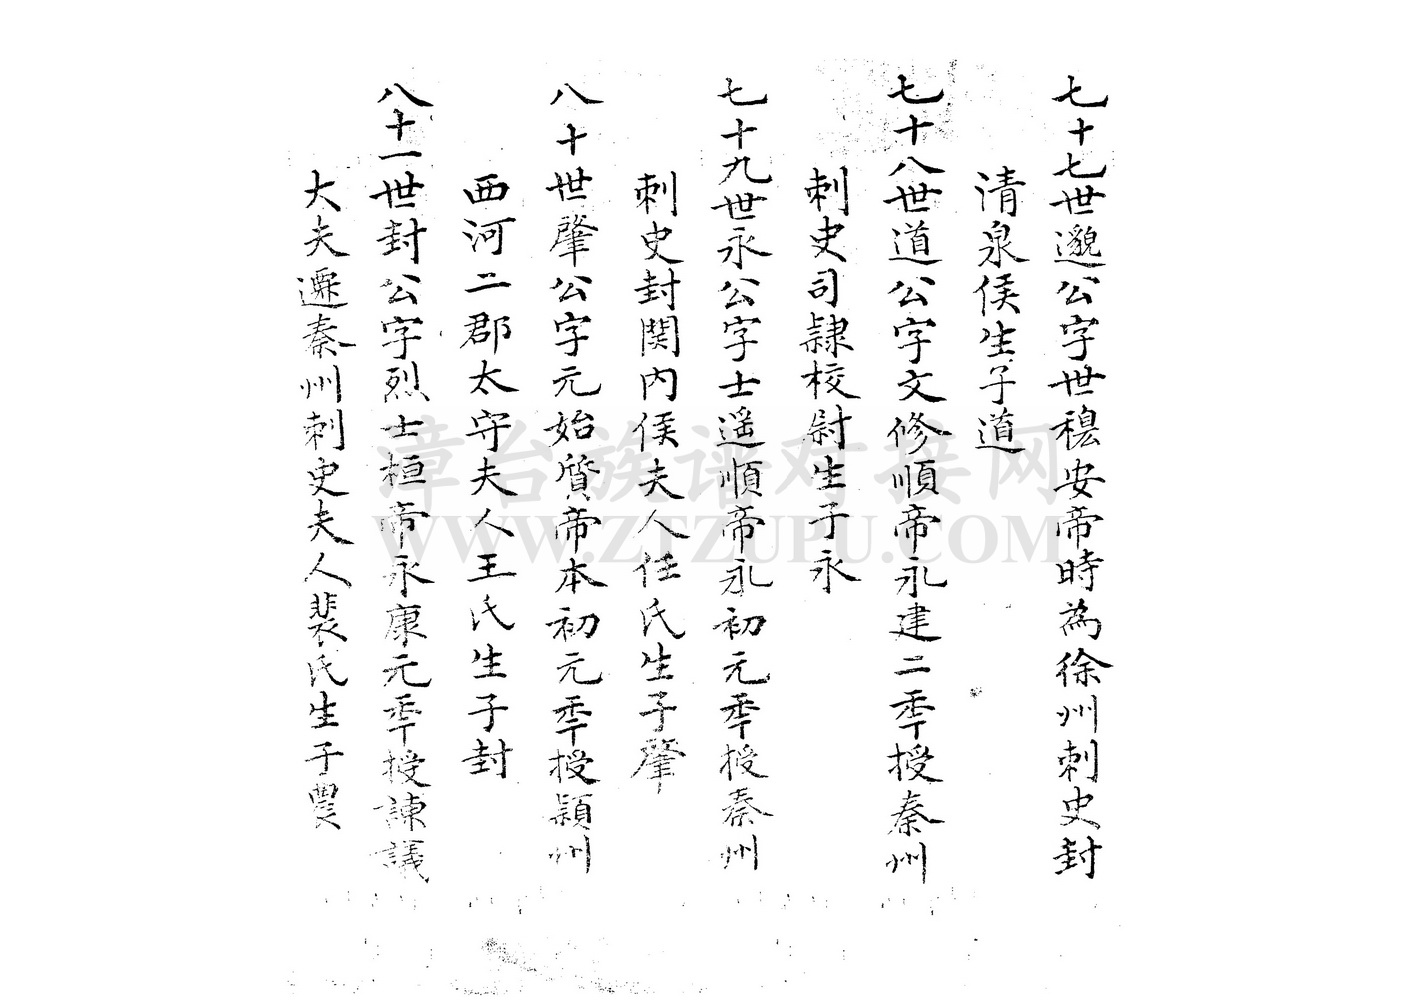 七十七世邈公字世穆安帝時為徐州刺史封
清泉侯生子道
七十八世道公字文修順帝永建二秊授秦州
刺史司隸校尉生子永
七十九世永公字士遥順帝永初元秊授秦州
刺史封関内侯夫人任氏生子肇
八十世肇公字元始質帝本初元秊授潁州
西河二郡太守夫人王氏生子封
八十一世封公字烈士桓帝永康元秊授諫議
大夫遷秦州刺史夫人裴氏生子
漳台族谱对接网
WWW.ZTZUPU.COM